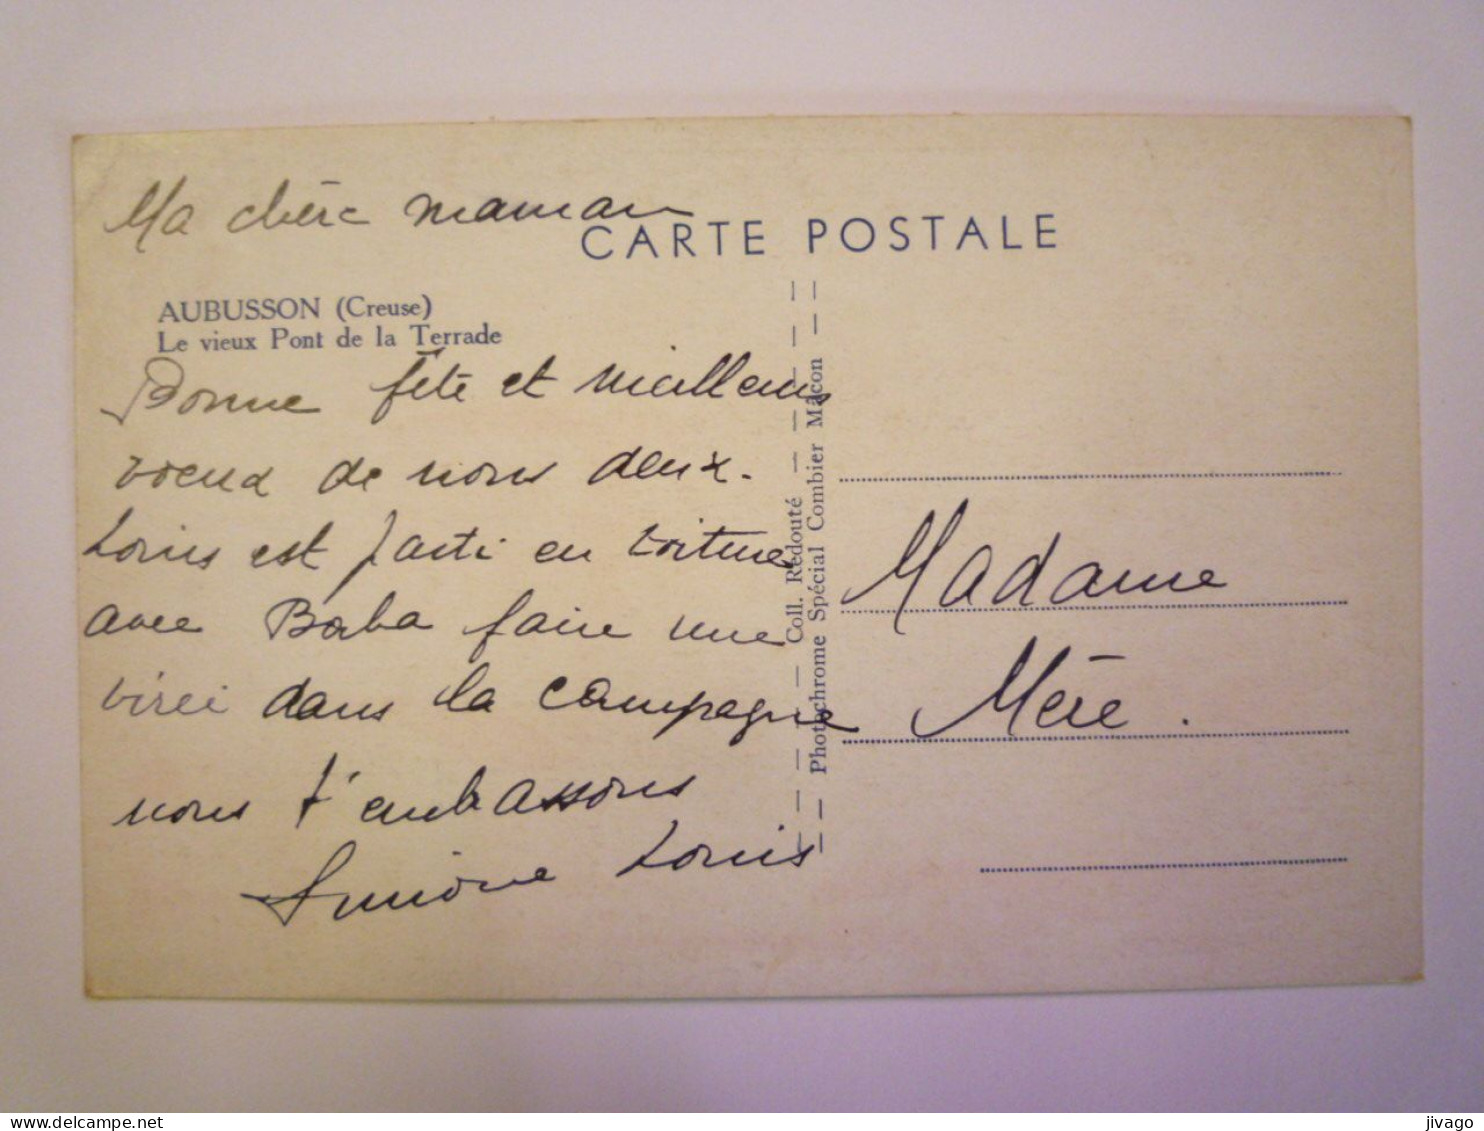 Ma chère maman
CARTE POSTALE
AUBUSSON (Creuse)
Le vieux Pont de la Terrade
Bonne fête et meilleurs
voeux de nous deux.
Louis est parti en voiture
avec Baba faire une
virée dans la campagne
nous t'embrassons
Simone Louis
Coll. Redouté
Photochrome Spécial Combier Mâcon
Madame
Mère.
jivago